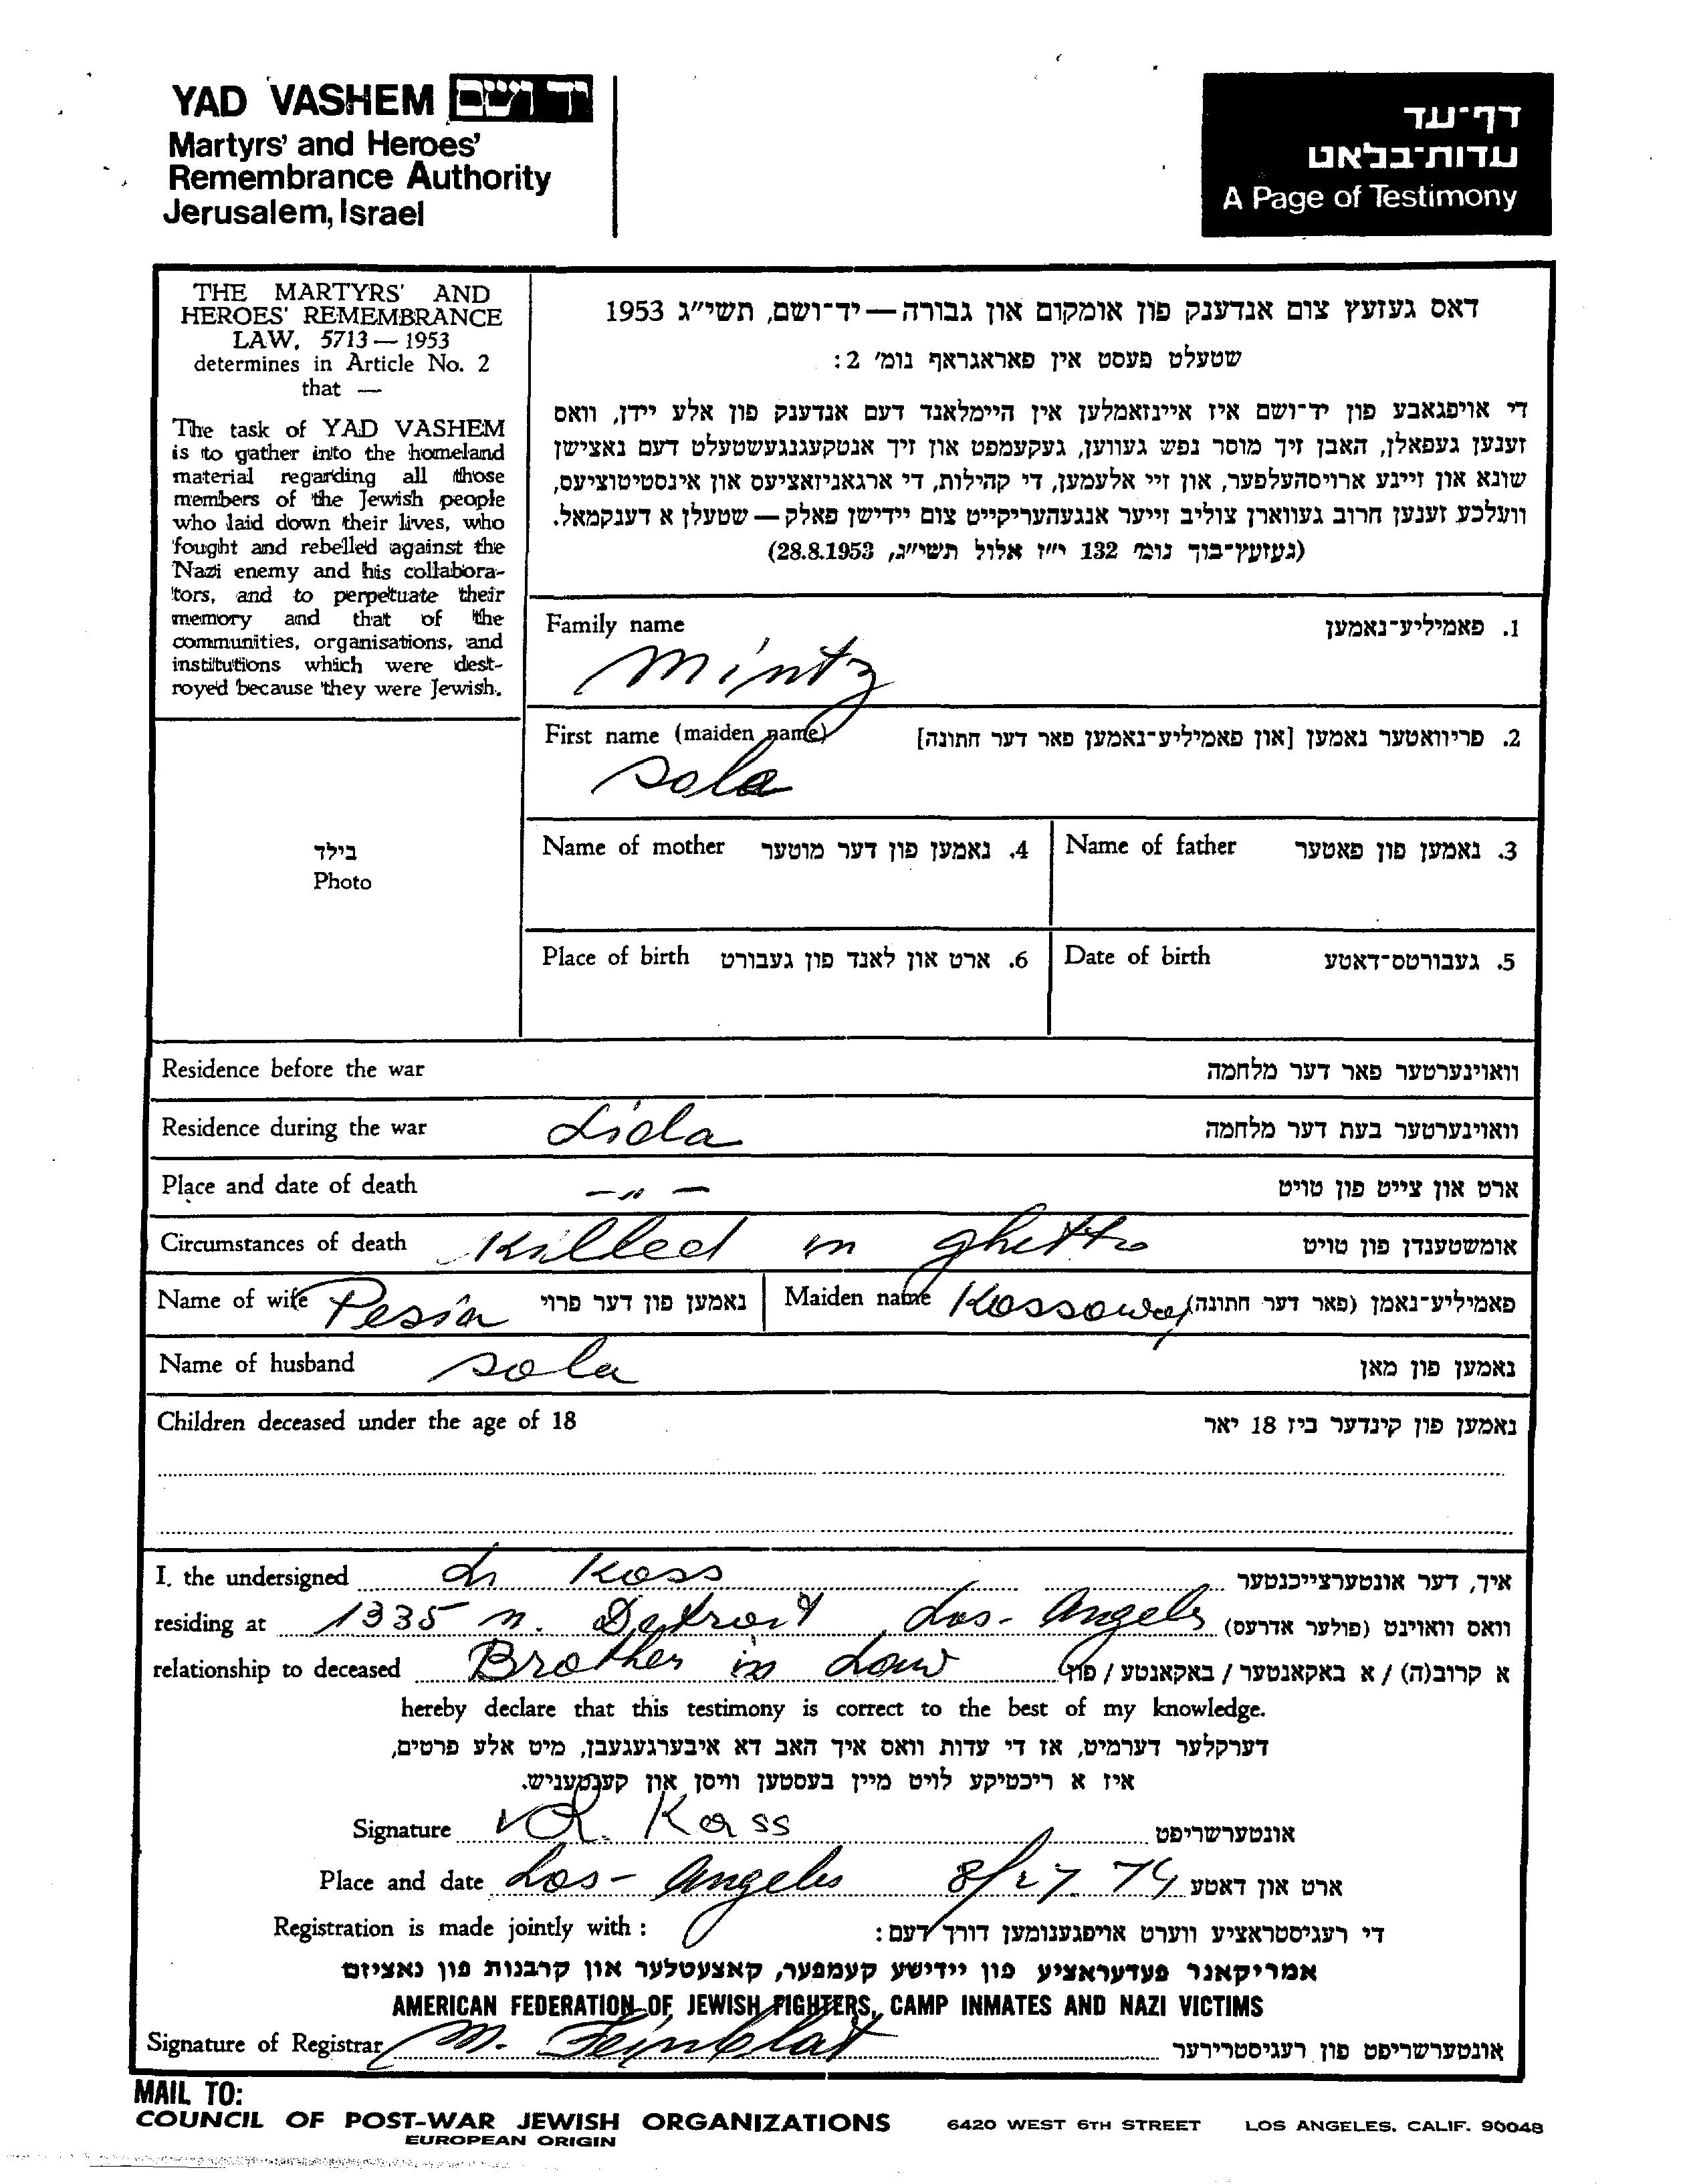 YAD VASHEM יד ושם
Martyrs' and Heroes'
Remembrance Authority
Jerusalem, Israel
דף-עד
עדות-בלאט
A Page of Testimony
THE MARTYRS' AND
HEROES' REMEMBRANCE
LAW, 5713 — 1953
determines in Article No. 2
that —
The task of YAD VASHEM
is to gather into the homeland
material regarding all those
members of the Jewish people
who laid down their lives, who
fought and rebelled against the
Nazi enemy and his collabora-
tors, and to perpetuate their
memory and that of the
communities, organisations, and
institutions which were dest-
royed because they were Jewish.
דאס געזעץ צום אנדענק פון אומקום און גבורה — יד-ושם, תשי״ג 1953
שטעלט פעסט אין פאראגראף נומ׳ 2:
די אויפגאבע פון יד-ושם איז איינזאמלען אין היימלאנד דעם אנדענק פון אלע יידן, וואס
זענען געפאלן, האבן זיך מוסר נפש געווען, געקעמפט און זיך אנטקעגנגעשטעלט דעם נאצישן
שונא און זיינע ארויסהעלפער, און זיי אלעמען, די קהילות, די ארגאניזאציעס און אינסטיטוציעס,
וועלכע זענען חרוב געווארן צוליב זייער אנגעהעריקייט צום יידישן פאלק — שטעלן א דענקמאל.
(געזעץ-בוך נומ׳ 132 י״ז אלול תשי״ג, 28.8.1953)
Family name 1. פאמיליע-נאמען
Mintz
First name (maiden name) 2. פריוואטער נאמען [און פאמיליע-נאמען פאר דער חתונה]
Sola
בילד
Photo
Name of mother 4. נאמען פון דער מוטער Name of father 3. נאמען פון פאטער
Place of birth 6. ארט און לאנד פון געבורט Date of birth 5. געבורטס-דאטע
Residence before the war וואוינערטער פאר דער מלחמה
Residence during the war Lida וואוינערטער בעת דער מלחמה
Place and date of death —״— ארט און צייט פון טויט
Circumstances of death Killed in ghetto אומשטענדן פון טויט
Name of wife Pesia נאמען פון דער פרוי Maiden name Kossowey פאמיליע-נאמן (פאר דער חתונה)
Name of husband sola נאמען פון מאן
Children deceased under the age of 18 נאמען פון קינדער ביז 18 יאר
I, the undersigned Koss איך, דער אונטערצייכנטער
residing at 1335 n. Detroit, Los-Angeles וואס וואוינט (פולער אדרעס)
relationship to deceased Brother in Law א קרוב(ה) / א באקאנטער / באקאנטע / פון
hereby declare that this testimony is correct to the best of my knowledge.
דערקלער דערמיט, אז די עדות וואס איך האב דא איבערגעגעבן, מיט אלע פרטים,
איז א ריכטיקע לויט מיין בעסטען וויסן און קענטעניש.
Signature L. Kass אונטערשריפט
Place and date Los-Angeles 8/27 74 ארט און דאטע
Registration is made jointly with : די רעגיסטראציע ווערט אויפגענומען דורך דעם:
אמריקאנר פעדעראציע פון יידישע קעמפער, קאצעטלער און קרבנות פון נאציזם
AMERICAN FEDERATION OF JEWISH FIGHTERS, CAMP INMATES AND NAZI VICTIMS
Signature of Registrar M. Feinblat אונטערשריפט פון רעגיסטרירער
MAIL TO:
COUNCIL OF POST-WAR JEWISH ORGANIZATIONS 6420 WEST 6TH STREET LOS ANGELES, CALIF. 90048
EUROPEAN ORIGIN